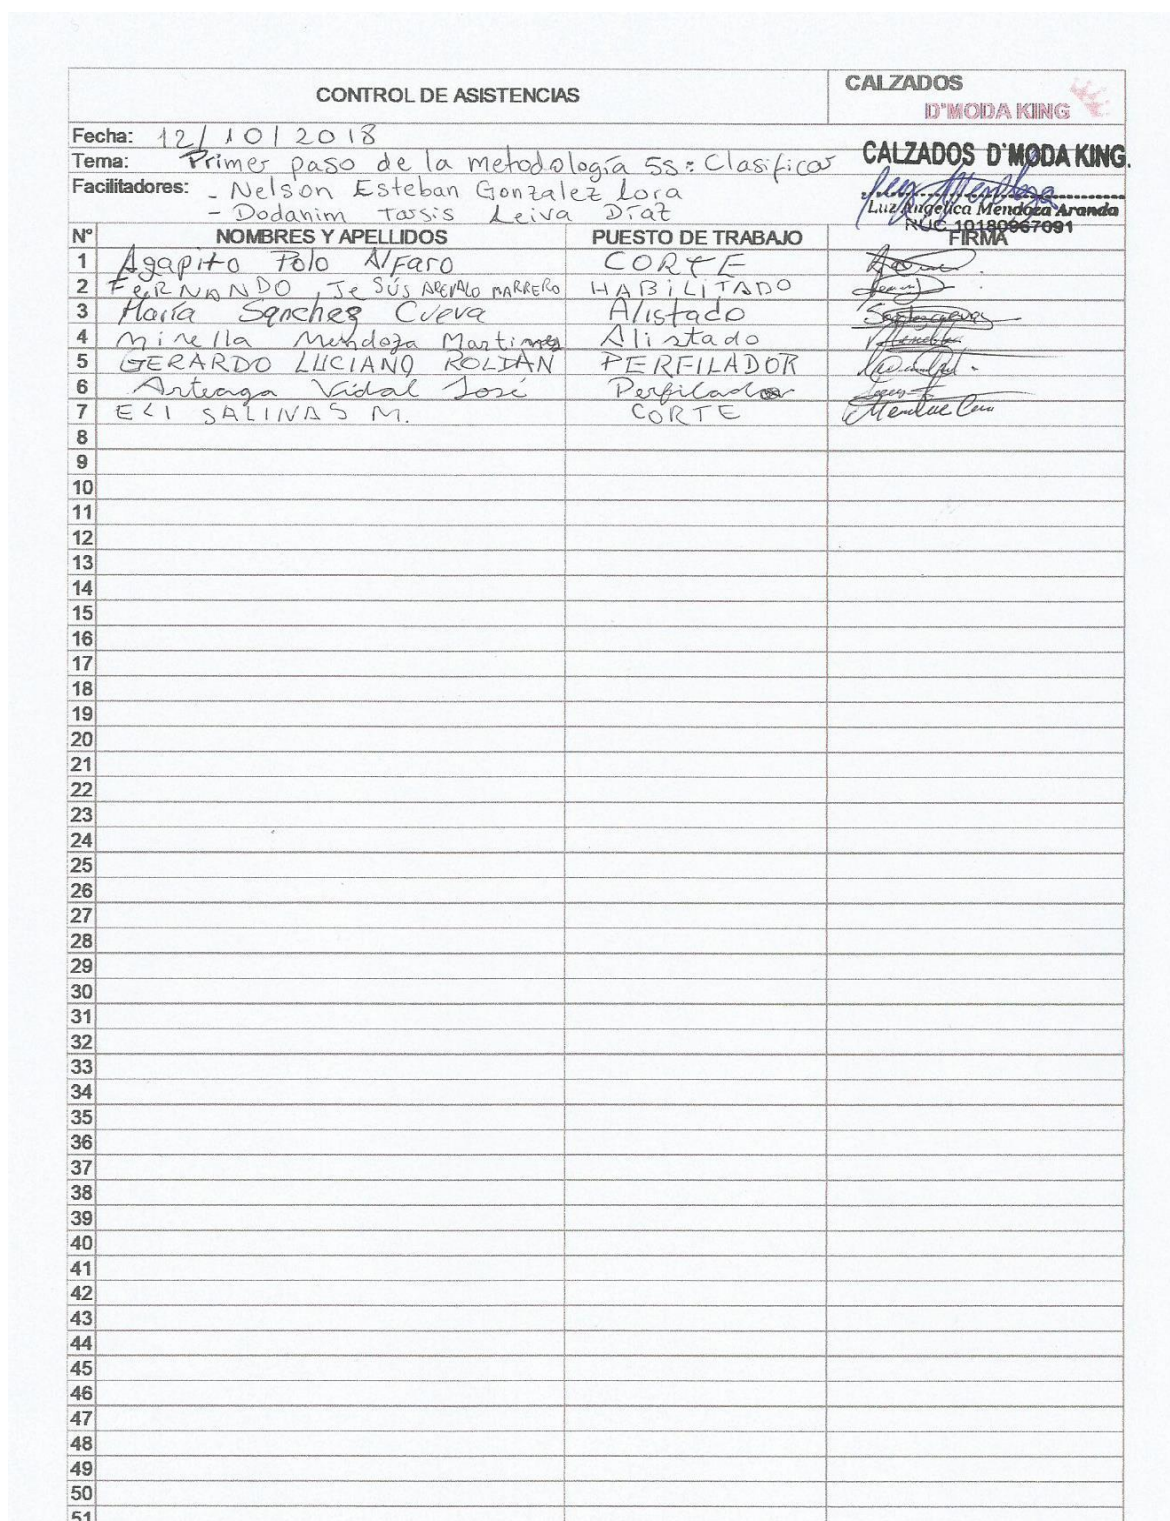 CONTROL DE ASISTENCIAS
CALZADOS
D'MODA KING
Fecha: 12/10/2018
Tema: Primer paso de la metodología 5s: Clasificar
CALZADOS D'MODA KING.
Facilitadores: - Nelson Esteban Gonzalez Lora
- Dodanim Tarsis Leiva Díaz
Luz Angelica Mendoza Aranda
RUC 10180967091
N° NOMBRES Y APELLIDOS PUESTO DE TRABAJO FIRMA
1 Agapito Polo Alfaro CORTE
2 FERNANDO JeSÚS AREVALO MARRERO HABiLiTADO
3 María Sanchez Cueva Alistado
4 Mirella Mendoza Martinez Alistado
5 GERARDO LUCIANO ROLDÁN PERFILADOR
6 Arteaga Vidal José Perfilador
7 ELI SALINAS M. CORTE
8
9
10
11
12
13
14
15
16
17
18
19
20
21
22
23
24
25
26
27
28
29
30
31
32
33
34
35
36
37
38
39
40
41
42
43
44
45
46
47
48
49
50
51